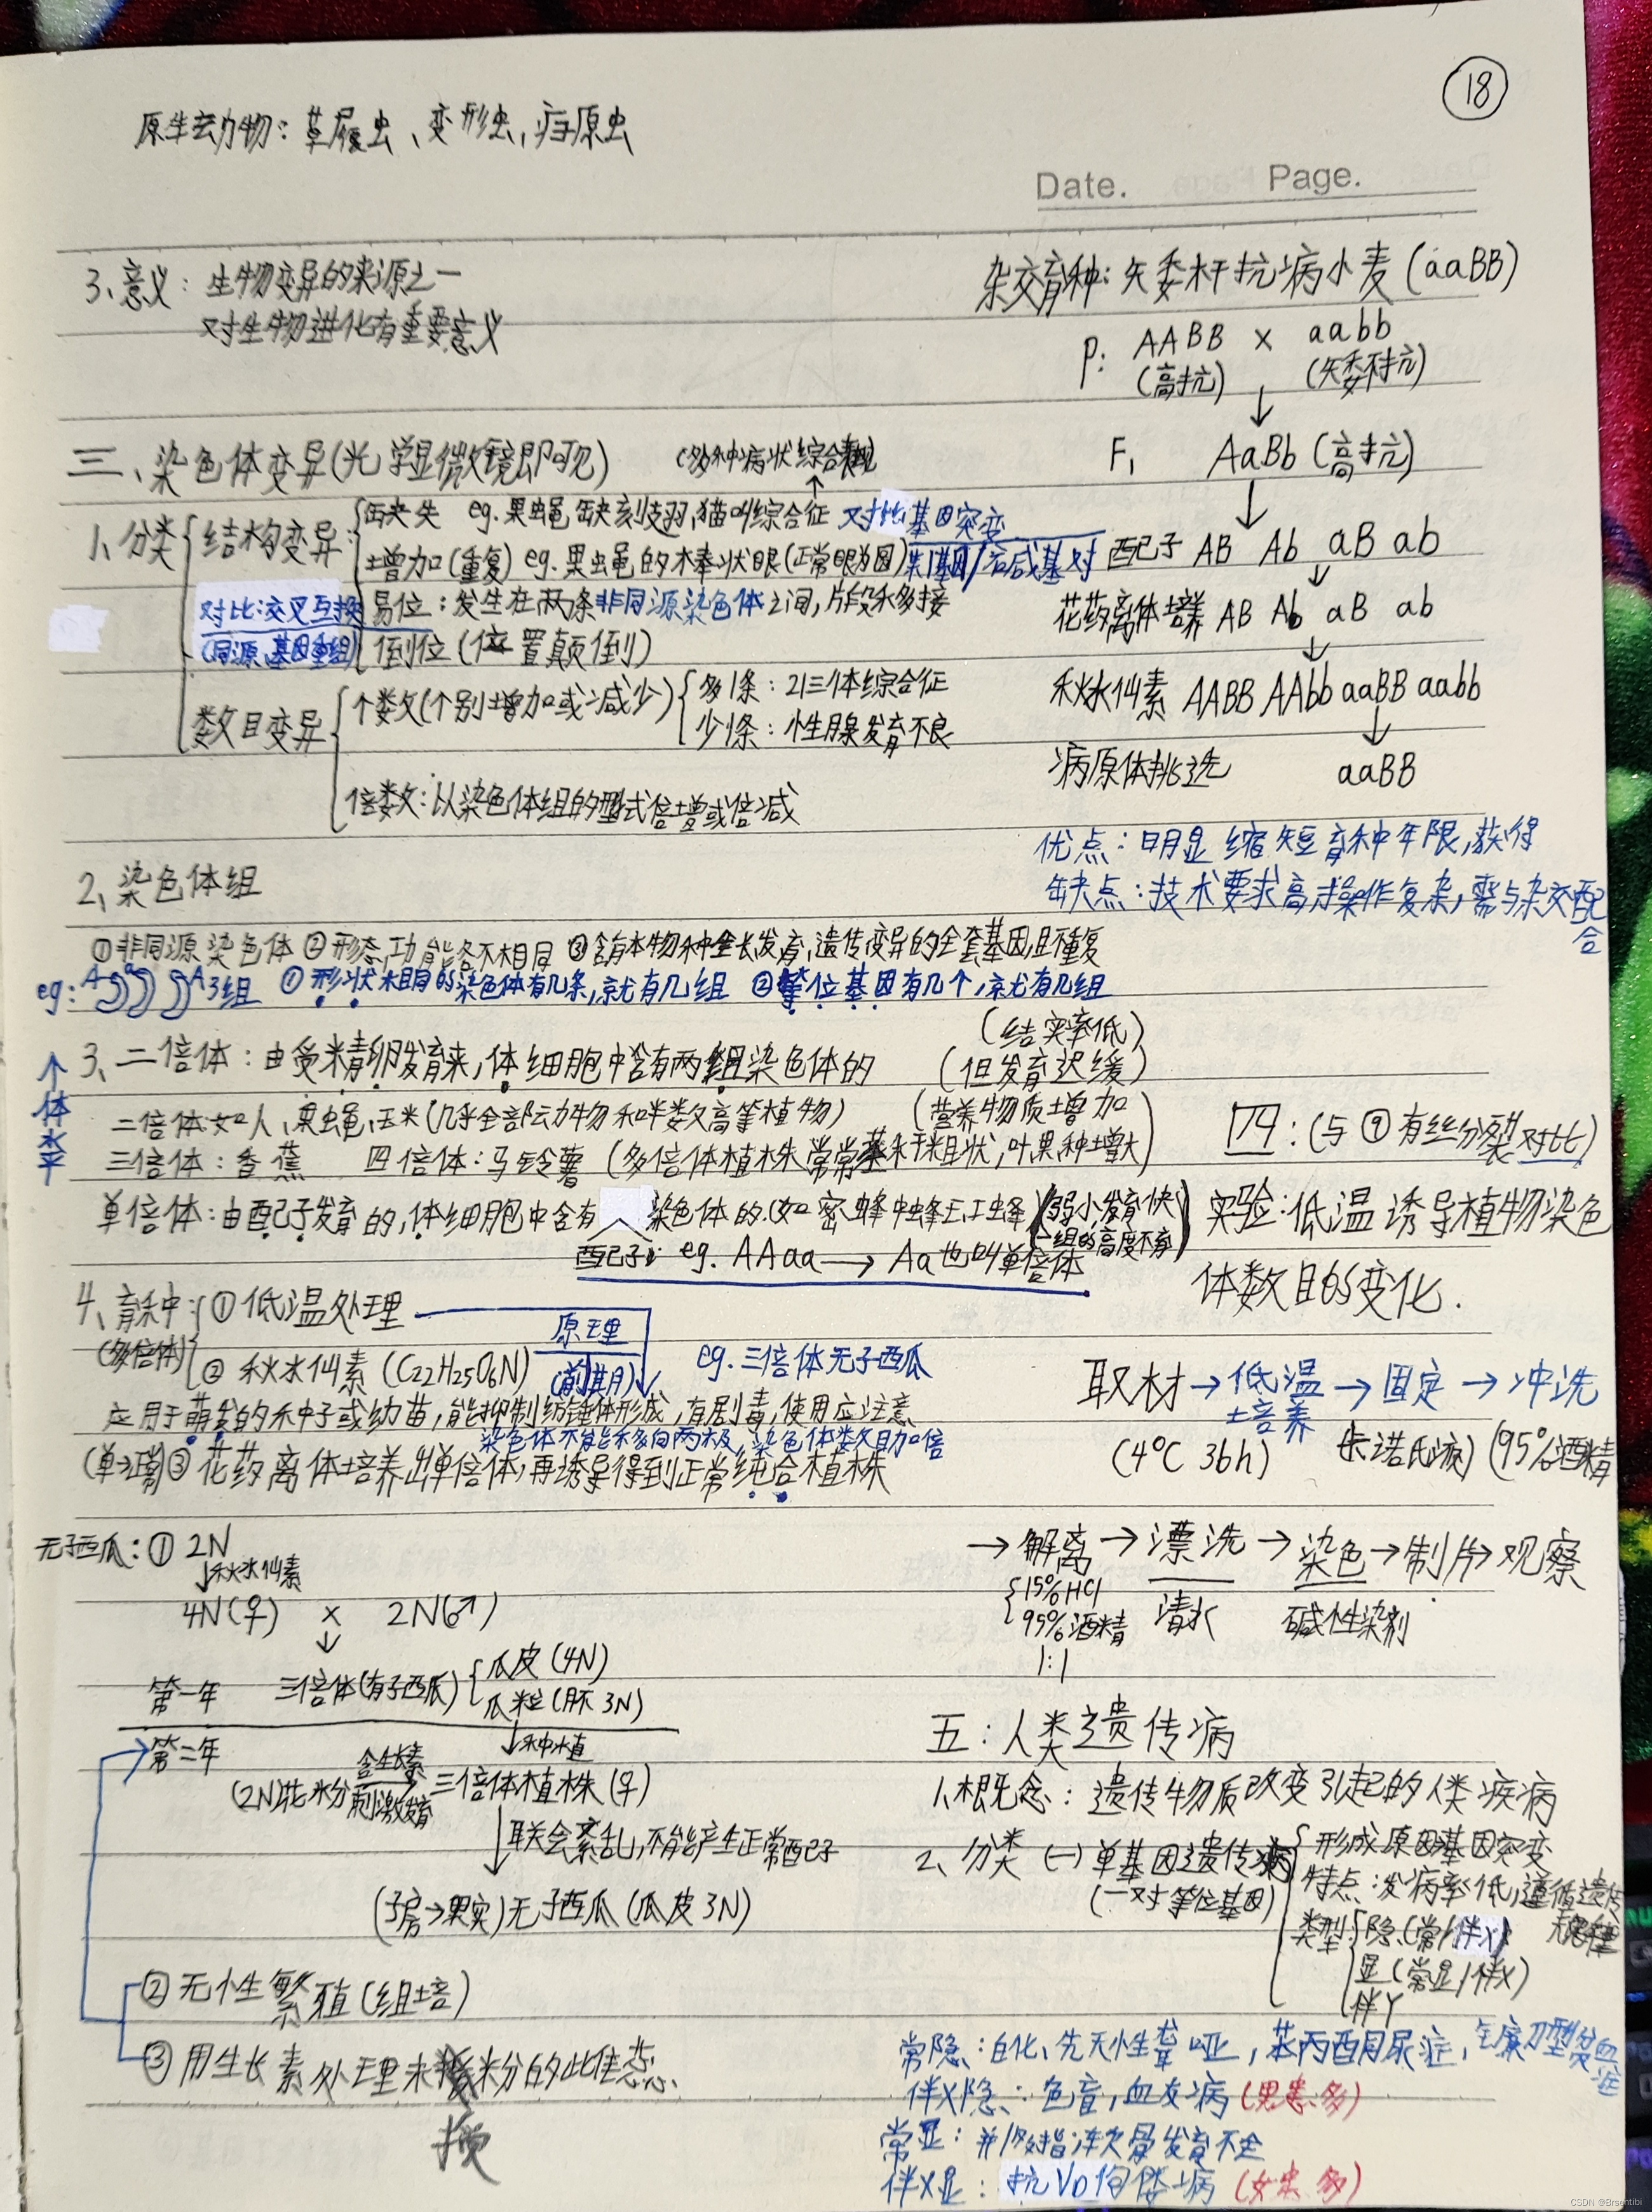 18
原生动物：草履虫、变形虫，疟原虫
Date. Page.
3、意义：生物变异的来源之一
对生物进化有重要意义
三、染色体变异(光学显微镜即可见)
(多种病状综合表现)
1、分类
结构变异
缺失 eg.果蝇缺刻翅，猫叫综合征 对比基因突变
增加(重复) eg.果蝇的棒状眼(正常眼为圆)
对比：交叉互换
(同源、基因重组)
易位：发生在两条非同源染色体之间，片段移接
倒位(位置颠倒)
数目变异
个数(个别增加或减少)
多1条：21三体综合征
少1条：性腺发育不良
倍数：以染色体组的形式倍增或倍减
2、染色体组
①非同源染色体 ②形态，功能各不相同 ③含有本物种生长发育，遗传变异的全套基因，且不重复
eg：A a A 3组 ①形状相同的染色体有几条，就有几组 ②等位基因有几个，就有几组
个体水平
3、二倍体：由受精卵发育来，体细胞中含有两组染色体的
(结实率低)
(但发育迟缓)
二倍体如人、果蝇、玉米(几乎全部动物和半数高等植物)
(营养物质增加
三倍体：香蕉 四倍体：马铃薯 (多倍体植株常常茎秆粗状，叶果种增大)
单倍体：由配子发育的，体细胞中含有 染色体的.(如蜜蜂中蜂王，工蜂)
(弱小，发育快
一组的高度不育)
配子 eg. AAaa → Aa也叫单倍体
4、育种
(多倍体)
①低温处理
原理
(前期)
②秋水仙素(C22H25O6N)
eg.三倍体无子西瓜
应用于萌发的种子或幼苗，能抑制纺锤体形成，有剧毒，使用应注意
染色体不能移向两极，染色体数目加倍
③花药离体培养出单倍体，再诱导得到正常纯合植株
无子西瓜：① 2N
↓秋水仙素
4N(♀) × 2N(♂)
↓
第一年 三倍体(有子西瓜)
瓜皮(4N)
瓜粒(胚 3N)
↓种植
第二年
(2N)花粉
含生长素
刺激发育
三倍体植株(♀)
↓联会紊乱，不能产生正常配子
(子房→果实)无子西瓜(瓜皮3N)
②无性繁殖(组培)
③用生长素处理未授粉的花
授
杂交育种：矮杆抗病小麦(aaBB)
P： AABB × aabb
(高抗) (矮不抗)
↓
F1 AaBb (高抗)
↓
配子 AB Ab aB ab
↓
花药离体培养 AB Ab aB ab
↓
秋水仙素 AABB AAbb aaBB aabb
↓
病原体挑选 aaBB
优点：明显缩短育种年限，获得
缺点：技术要求高，操作复杂，需与杂交配合
四：(与⑨有丝分裂对比)
实验：低温诱导植物染色
体数目的变化.
取材→低温→固定→冲洗
培养
(4℃ 36h) (卡诺氏液) (95%酒精
→解离→漂洗→染色→制片→观察
15%HCl 清水 碱性染剂
95%酒精
1:1
五：人类遗传病
1、概念：遗传物质改变引起的人类疾病
2、分类 (一)单基因遗传病
(一对等位基因)
形成原因基因突变
特点：发病率低，遵循遗传
规律
类型
隐(常/伴X)
显(常显/伴X)
伴Y
常隐：白化、先天性聋哑，苯丙酮尿症，镰刀型贫血症
伴X隐：色盲，血友病(男患多)
常显：并/多指，软骨发育不全
伴X显：抗VD佝偻病(女患多)
CSDN @Brsentibi